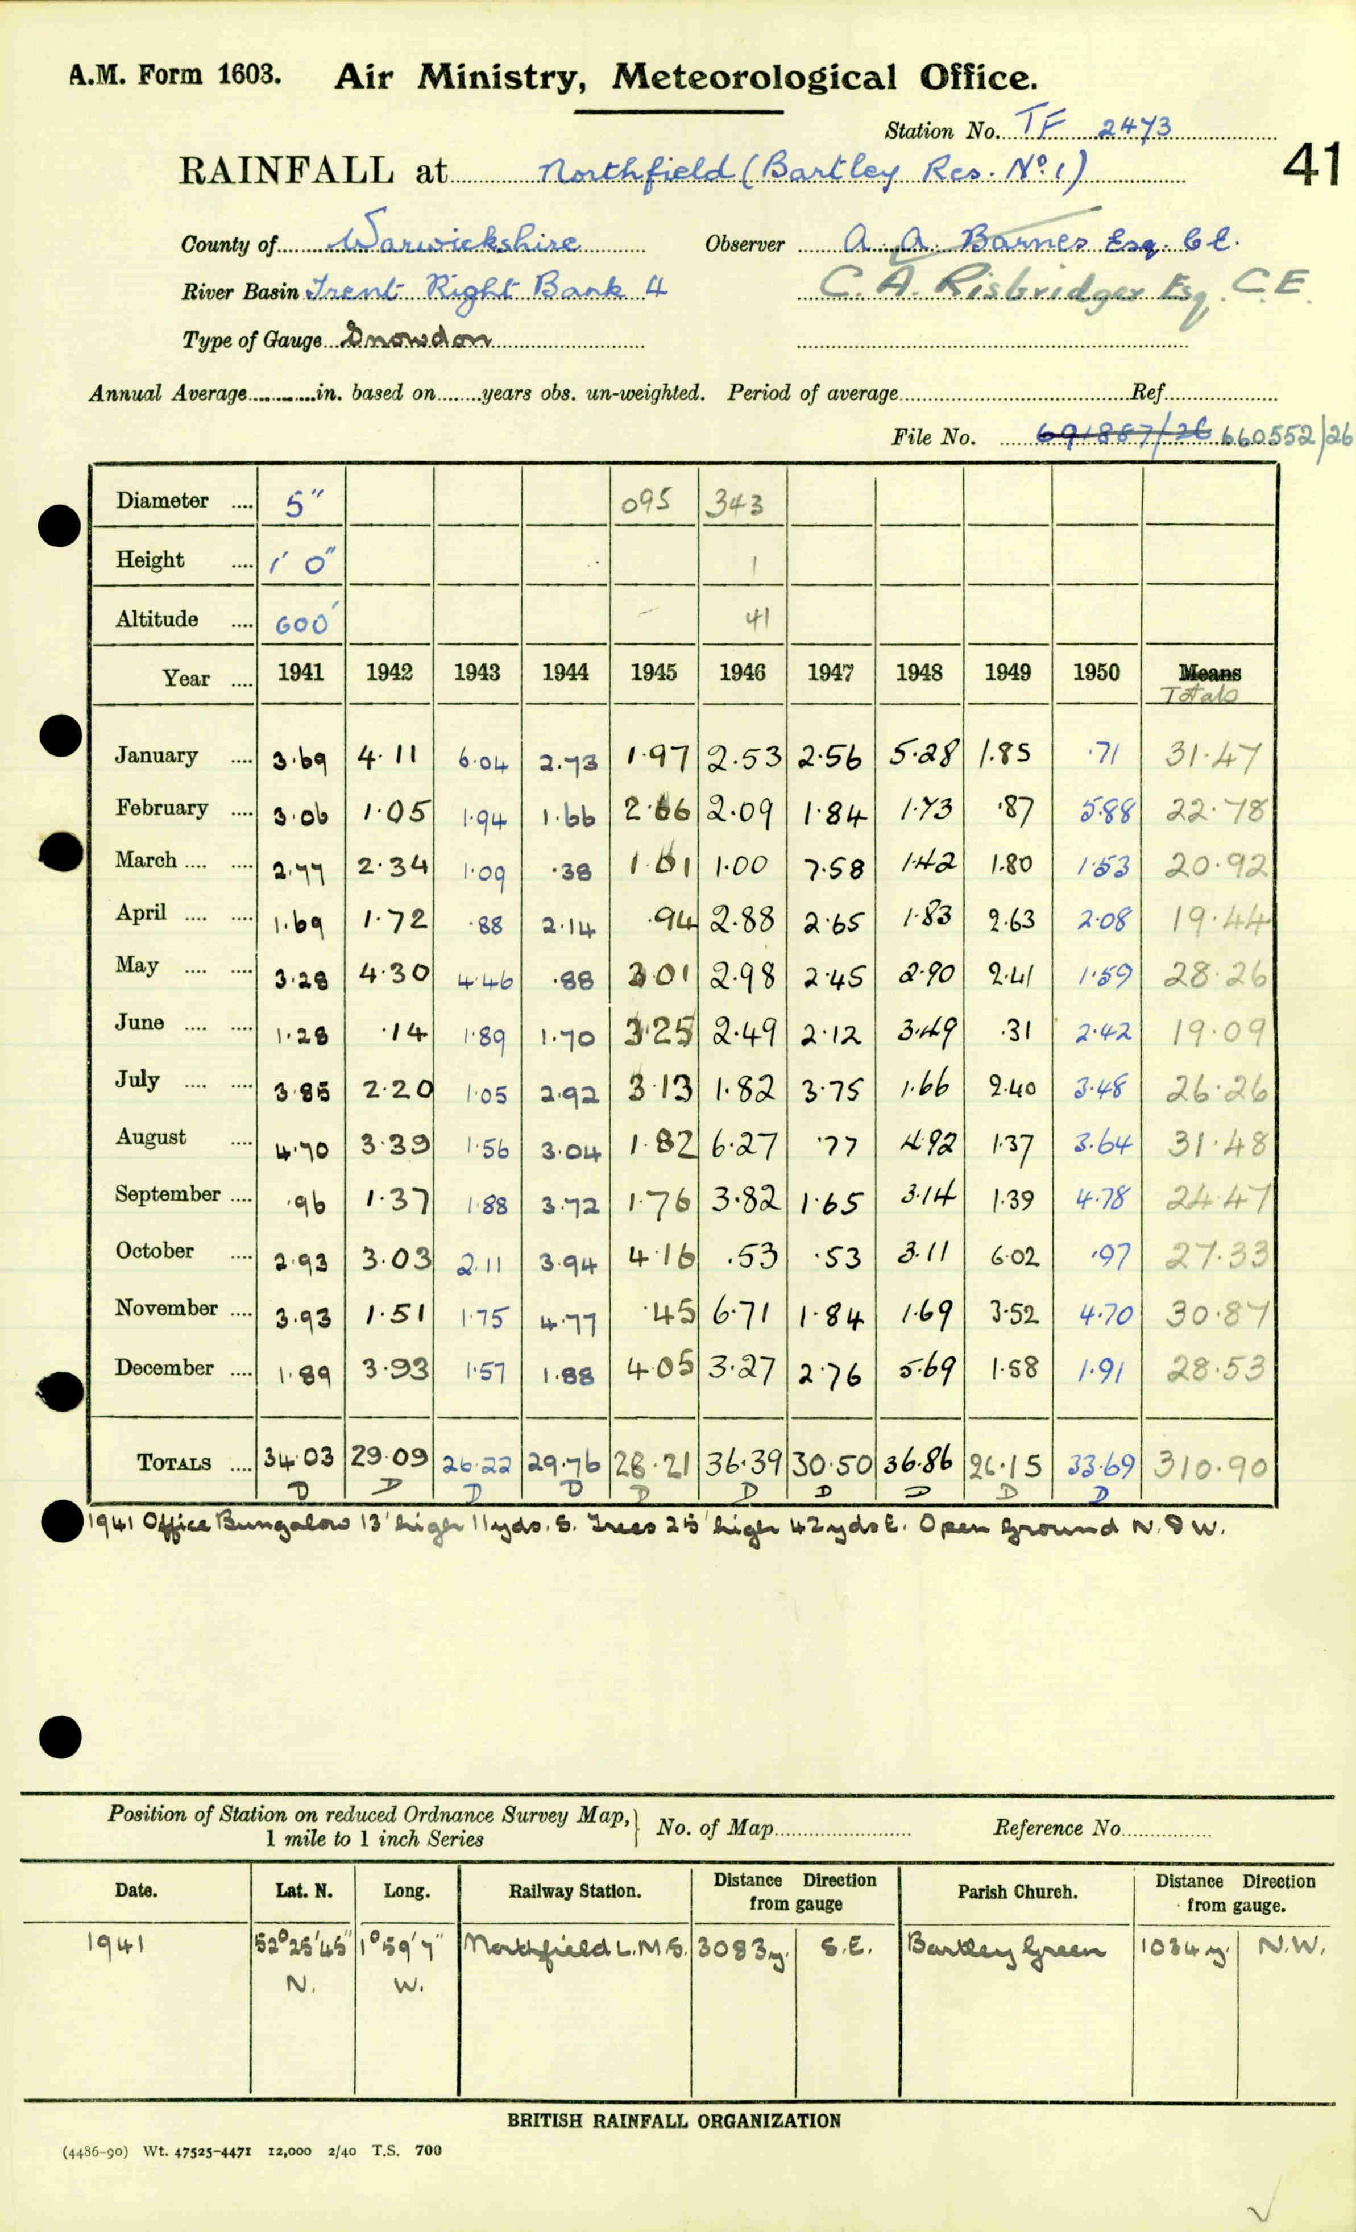 A.M. Form 1603. Air Ministry, Meteorological Office.
Station No. TF 2473
41
RAINFALL at Northfield (Bartley Res. No. 1)
County of Warwickshire Observer A. A. Barnes Esq. C.E.
River Basin Trent Right Bank 4 C. A. Risbridger Esq. C.E.
Type of Gauge Snowdon
Annual Average in. based on years obs. un-weighted. Period of average Ref
File No. 691887/26 660552/26
Diameter 5" 095 343
Height 1' 0" 1
Altitude 600' 41
Year 1941 1942 1943 1944 1945 1946 1947 1948 1949 1950 Means
Totals
January 3.69 4.11 6.04 2.73 1.97 2.53 2.56 5.28 1.85 .71 31.47
February 3.06 1.05 1.94 1.66 2.66 2.09 1.84 1.73 .87 5.88 22.78
March 2.77 2.34 1.09 .38 1.01 1.00 7.58 1.42 1.80 1.53 20.92
April 1.69 1.72 .88 2.14 .94 2.88 2.65 1.83 2.63 2.08 19.44
May 3.28 4.30 4.46 .88 3.01 2.98 2.45 2.90 2.41 1.59 28.26
June 1.28 .14 1.89 1.70 3.25 2.49 2.12 3.49 .31 2.42 19.09
July 3.85 2.20 1.05 2.92 3.13 1.82 3.75 1.66 2.40 3.48 26.26
August 4.70 3.39 1.56 3.04 1.82 6.27 .77 4.92 1.37 3.64 31.48
September .96 1.37 1.88 3.72 1.76 3.82 1.65 3.14 1.39 4.78 24.47
October 2.93 3.03 2.11 3.94 4.16 .53 .53 3.11 6.02 .97 27.33
November 3.93 1.51 1.75 4.77 .45 6.71 1.84 1.69 3.52 4.70 30.87
December 1.89 3.93 1.57 1.88 4.05 3.27 2.76 5.69 1.58 1.91 28.53
TOTALS 34.03 29.09 26.22 29.76 28.21 36.39 30.50 36.86 26.15 33.69 310.90
D D D D D D D D D D
1941 Office Bungalow 13' high 11yds. S. Trees 25' high 42yds E. Open Ground N. & W.
Position of Station on reduced Ordnance Survey Map, No. of Map Reference No.
1 mile to 1 inch Series
Date. Lat. N. Long. Railway Station. Distance Direction from gauge Parish Church. Distance Direction from gauge.
1941 52° 25' 45" 1° 59' 7" Northfield L.M.S. 3083y. S.E. Bartley Green 1034y. N.W.
N. W.
BRITISH RAINFALL ORGANIZATION
(4486-90) Wt. 47525-4471 12,000 2/40 T.S. 700